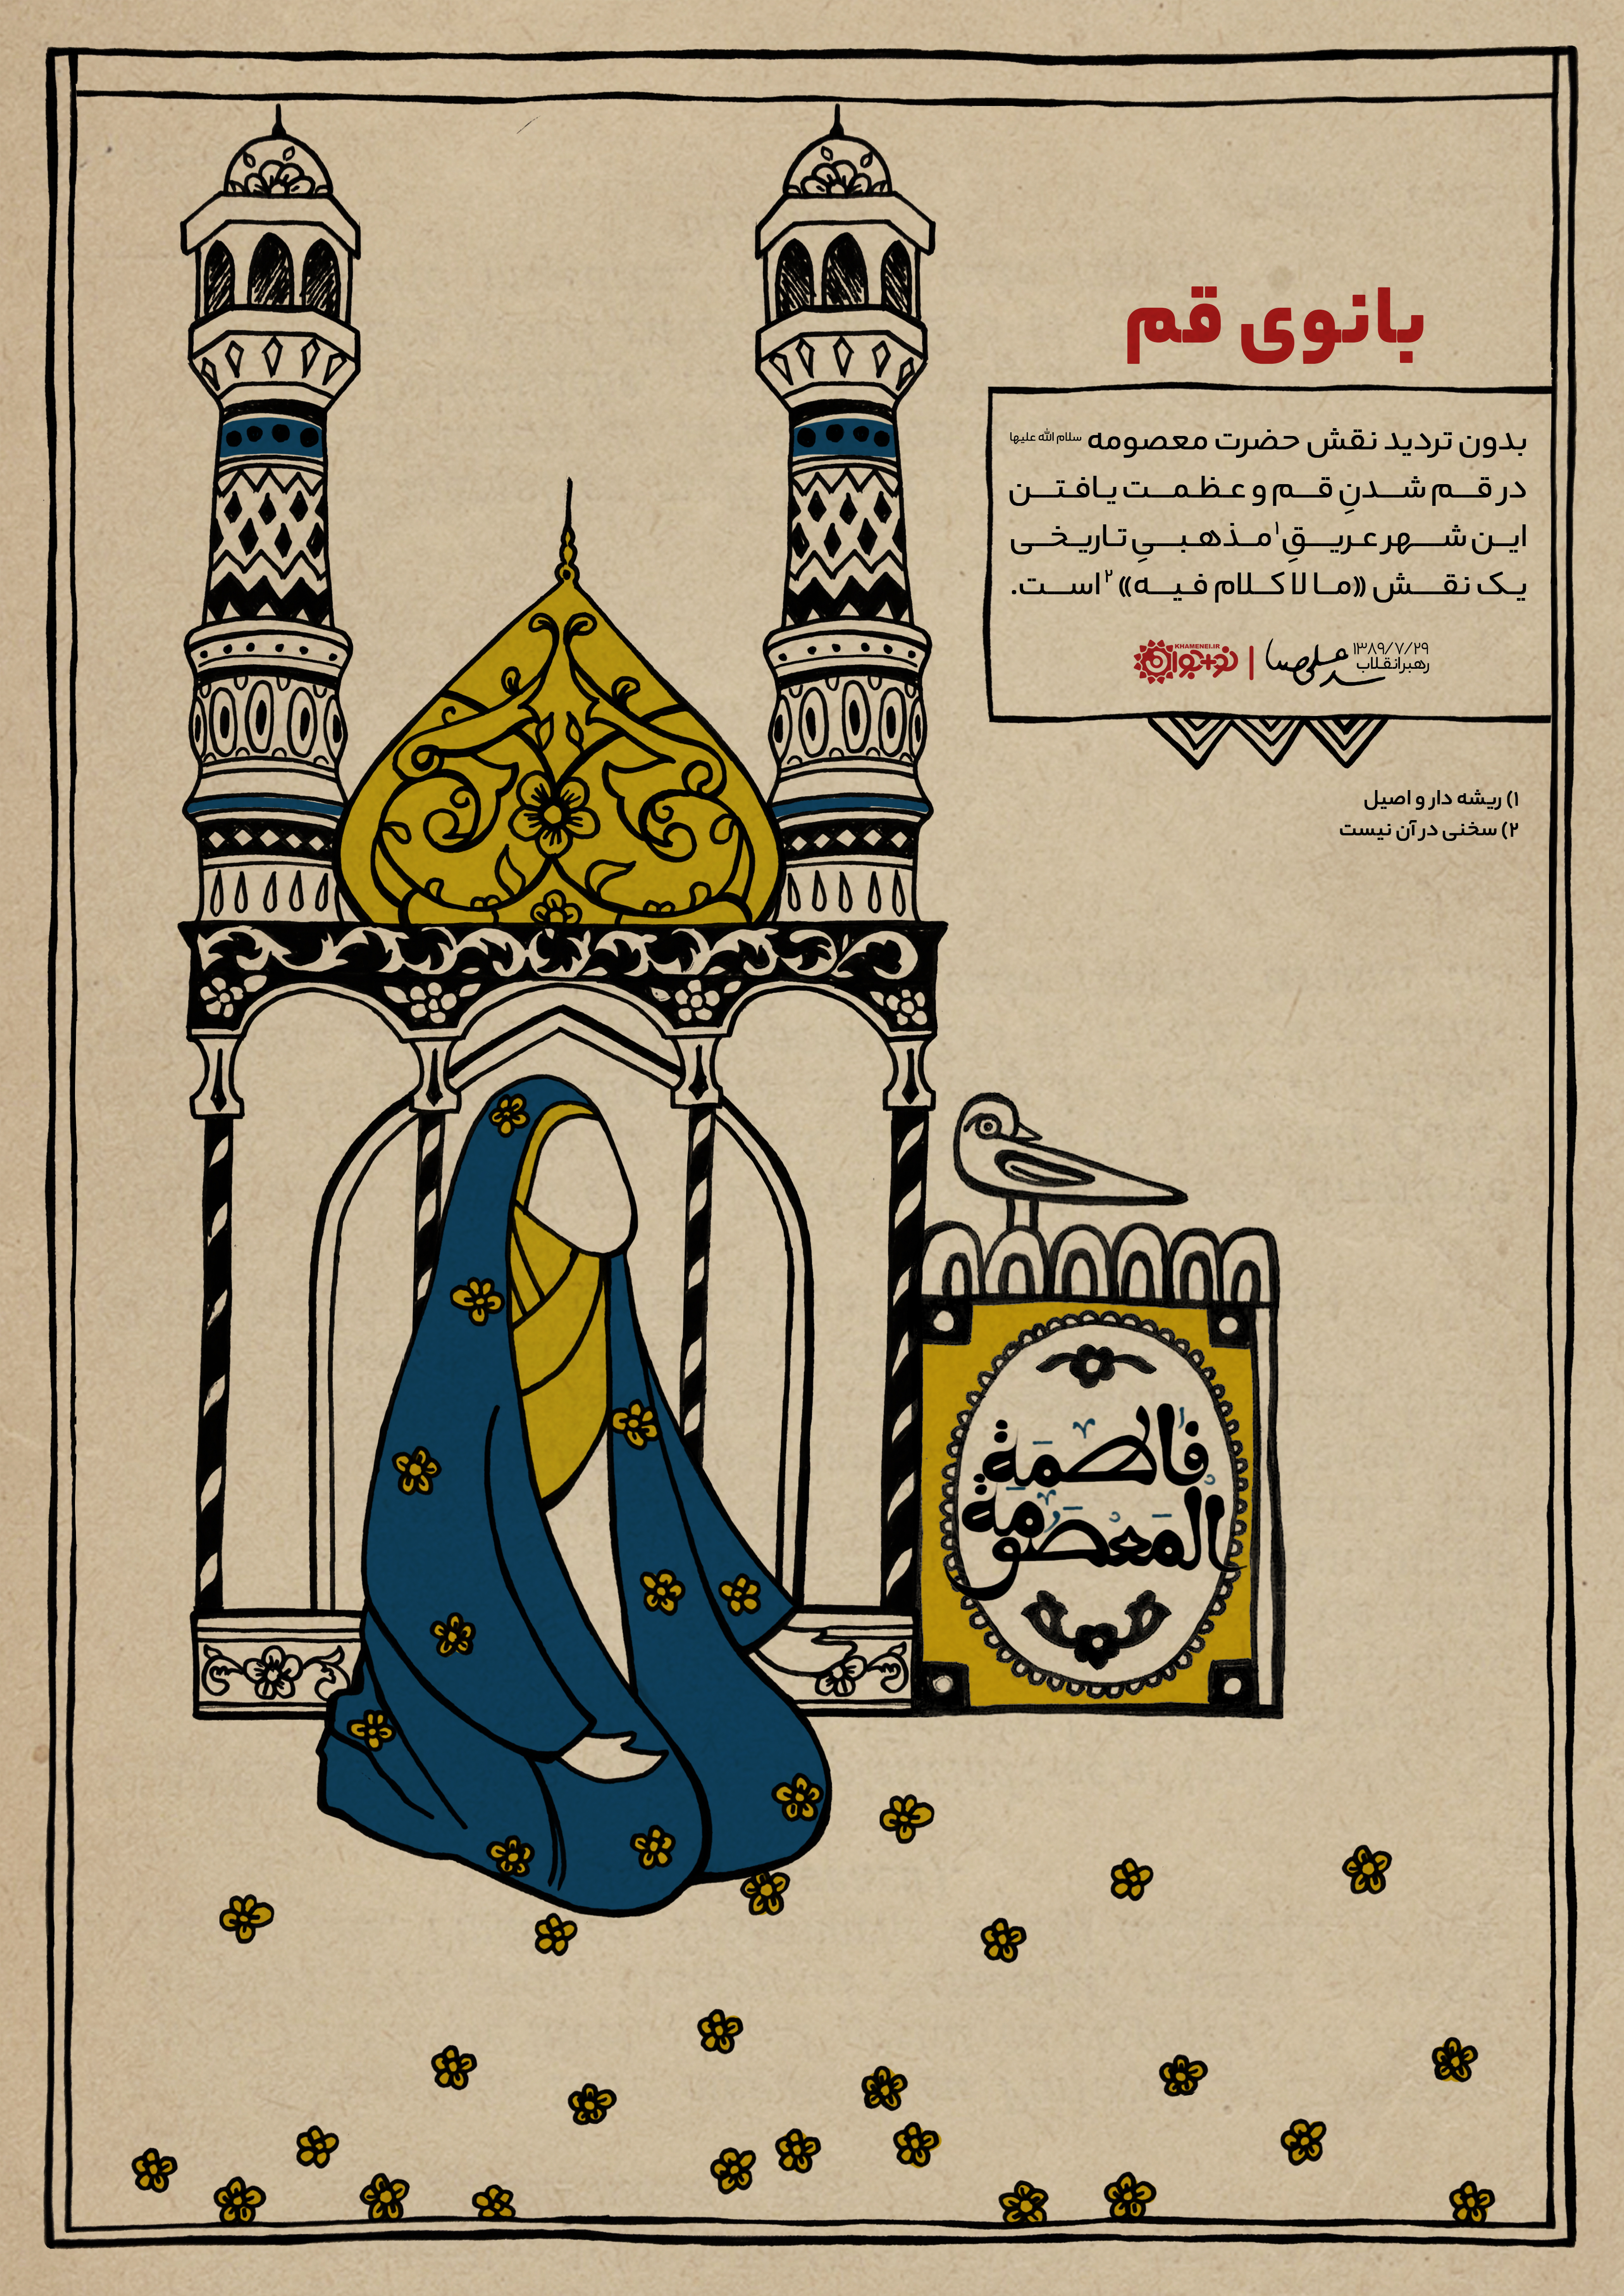 بانوی قم
بدون تردید نقش حضرت معصومه سلام الله علیها
در قم شدنِ قم و عظمت یافتن
این شهر عریقِ۱ مذهبیِ تاریخی
یک نقش «ما لا کلام فیه»۲ است.
۱۳۸۹/۷/۲۹
رهبر انقلاب
KHAMENEI.IR
نوجوان
۱) ریشه دار و اصیل
۲) سخنی در آن نیست
فاطمة
المعصومة